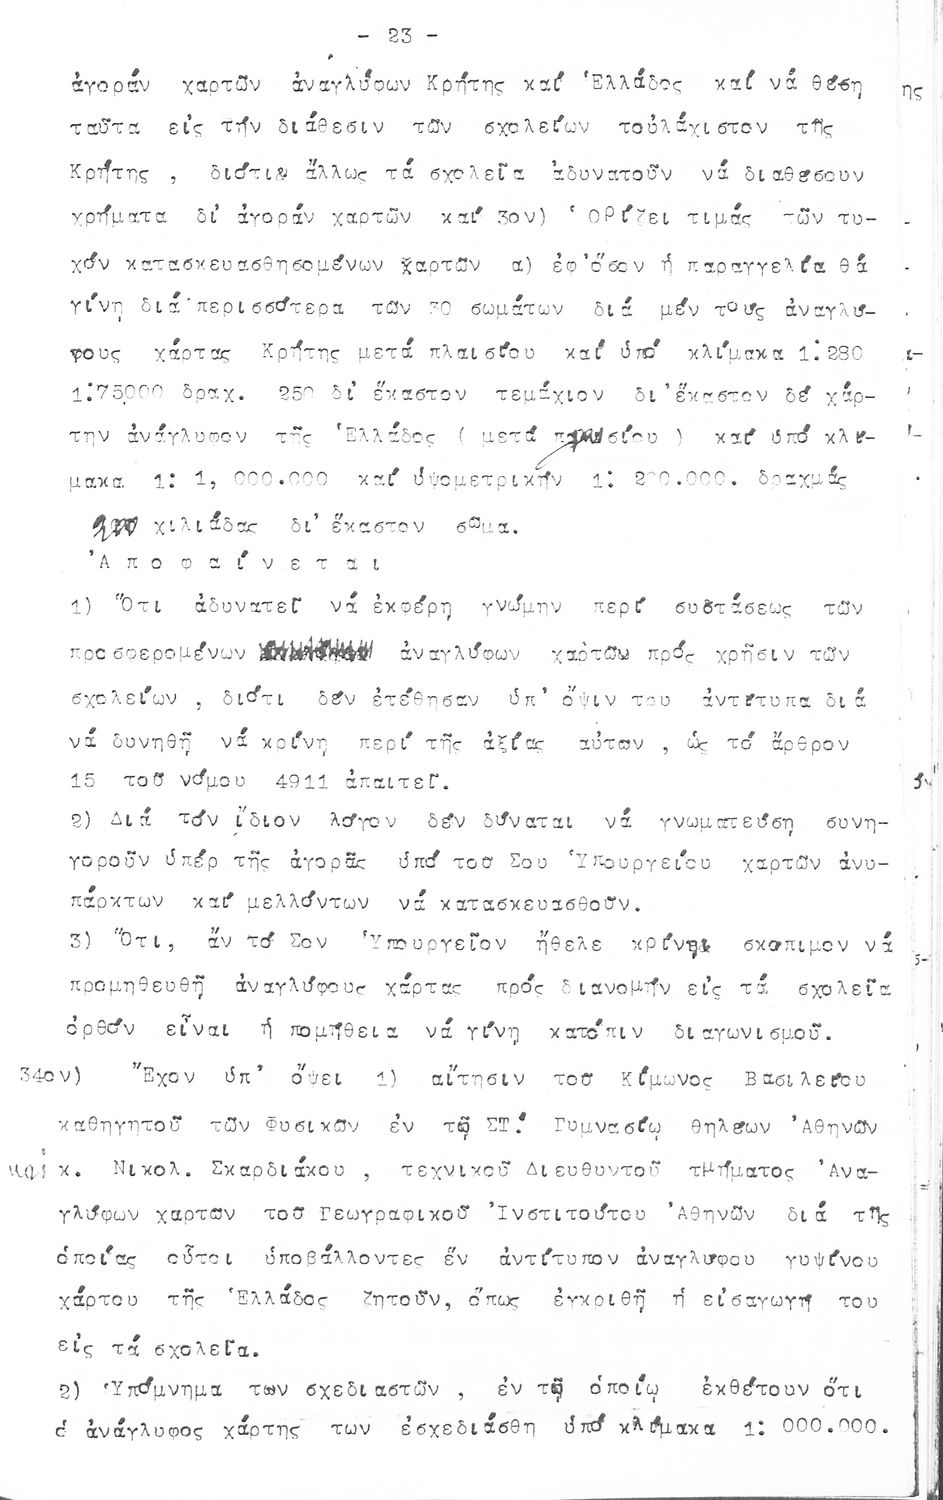 - 23 -
ἀγοράν χαρτῶν ἀναγλύφων Κρήτης καί Ἑλλάδος καί νά θέση
ταῦτα εἰς τήν διάθεσιν τῶν σχολείων τοὐλάχιστον τῆς
Κρήτης , διότι ἄλλως τά σχολεῖα ἀδυνατοῦν νά διαθέσουν
χρήματα δι' ἀγοράν χαρτῶν καί 3ον) Ὁρίζει τιμάς τῶν τυ-
χόν κατασκευασθησομένων χαρτῶν α) ἐφ'ὅσον ἡ παραγγελία θά
γίνη διά περισσότερα τῶν 30 σωμάτων διά μέν τούς ἀναγλύ-
φους χάρτας Κρήτης μετά πλαισίου καί ὑπό κλίμακα 1:280
1:75000 δραχ. 250 δι' ἕκαστον τεμάχιον δι'ἕκαστον δέ χάρ-
την ἀνάγλυφον τῆς Ἑλλάδος ( μετά πλαισίου ) καί ὑπό κλί-
μακα 1: 1, 000.000 καί ὑψομετρικήν 1: 200.000. δραχμάς
χιλιάδας δι' ἕκαστον σῶμα.
Ἀ π ο φ α ί ν ε τ α ι
1) Ὅτι ἀδυνατεῖ νά ἐκφέρη γνώμην περί συστάσεως τῶν
προσφερομένων ἀναγλύφων χαρτῶν πρός χρῆσιν τῶν
σχολείων , διότι δέν ἐτέθησαν ὑπ' ὄψιν του ἀντίτυπα διά
νά δυνηθῆ νά κρίνη περί τῆς ἀξίας αὐτῶν , ὡς τό ἄρθρον
15 τοῦ νόμου 4911 ἀπαιτεῖ.
2) Διά τόν ἴδιον λόγον δέν δύναται νά γνωματεύση συνη-
γοροῦν ὑπέρ τῆς ἀγορᾶς ὑπό τοῦ Σου Ὑπουργείου χαρτῶν ἀνυ-
πάρκτων καί μελλόντων νά κατασκευασθοῦν.
3) Ὅτι, ἄν τό Σον Ὑπουργεῖον ἤθελε κρίνει σκόπιμον νά
προμηθευθῆ ἀναγλύφους χάρτας πρός διανομήν εἰς τά σχολεῖα
ὀρθόν εἶναι ἡ πομήθεια νά γίνη κατόπιν διαγωνισμοῦ.
34ον) Ἔχον ὑπ' ὄψει 1) αἴτησιν τοῦ Κίμωνος Βασιλείου
καθηγητοῦ τῶν Φυσικῶν ἐν τῷ ΣΤ! Γυμνασίῳ θηλέων Ἀθηνῶν
καί κ. Νικολ. Σκαρδιάκου , τεχνικοῦ Διευθυντοῦ τμήματος Ἀνα-
γλύφων χαρτῶν τοῦ Γεωγραφικοῦ Ἰνστιτούτου Ἀθηνῶν διά τῆς
ὁποίας οὗτοι ὑποβάλλοντες ἕν ἀντίτυπον ἀναγλύφου γυψίνου
χάρτου τῆς Ἑλλάδος ζητοῦν, ὅπως ἐγκριθῆ ἡ εἰσαγωγή του
εἰς τά σχολεῖα.
2) Ὑπόμνημα των σχεδιαστῶν , ἐν τῷ ὁποίῳ ἐκθέτουν ὅτι
ὁ ἀνάγλυφος χάρτης των ἐσχεδιάσθη ὑπό κλίμακα 1: 000.000.